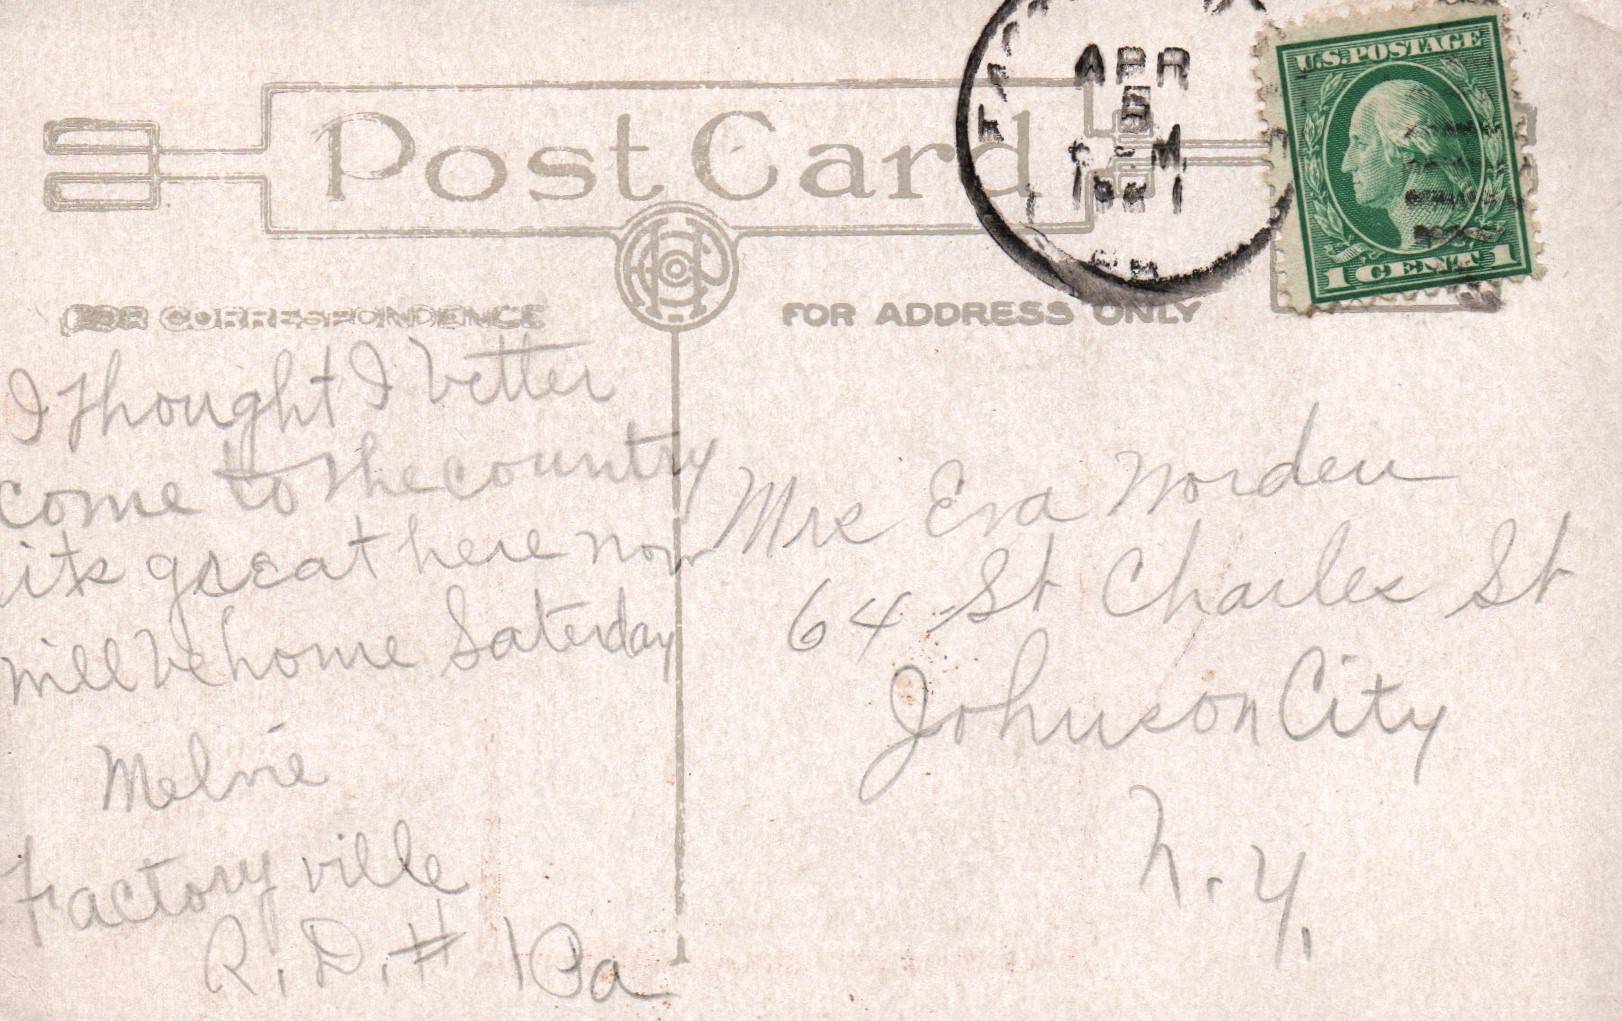 Post Card
APR
5
M
U.S. POSTAGE
1 CENT 1
FOR CORRESPONDENCE
FOR ADDRESS ONLY
I thought I better
come to the country
its great here now
will be home Saterday
Melvie
Factoryville
R.D. # 1 Pa
Mrs Eva Norden
64 St Charles St
Johnson City
N.Y.